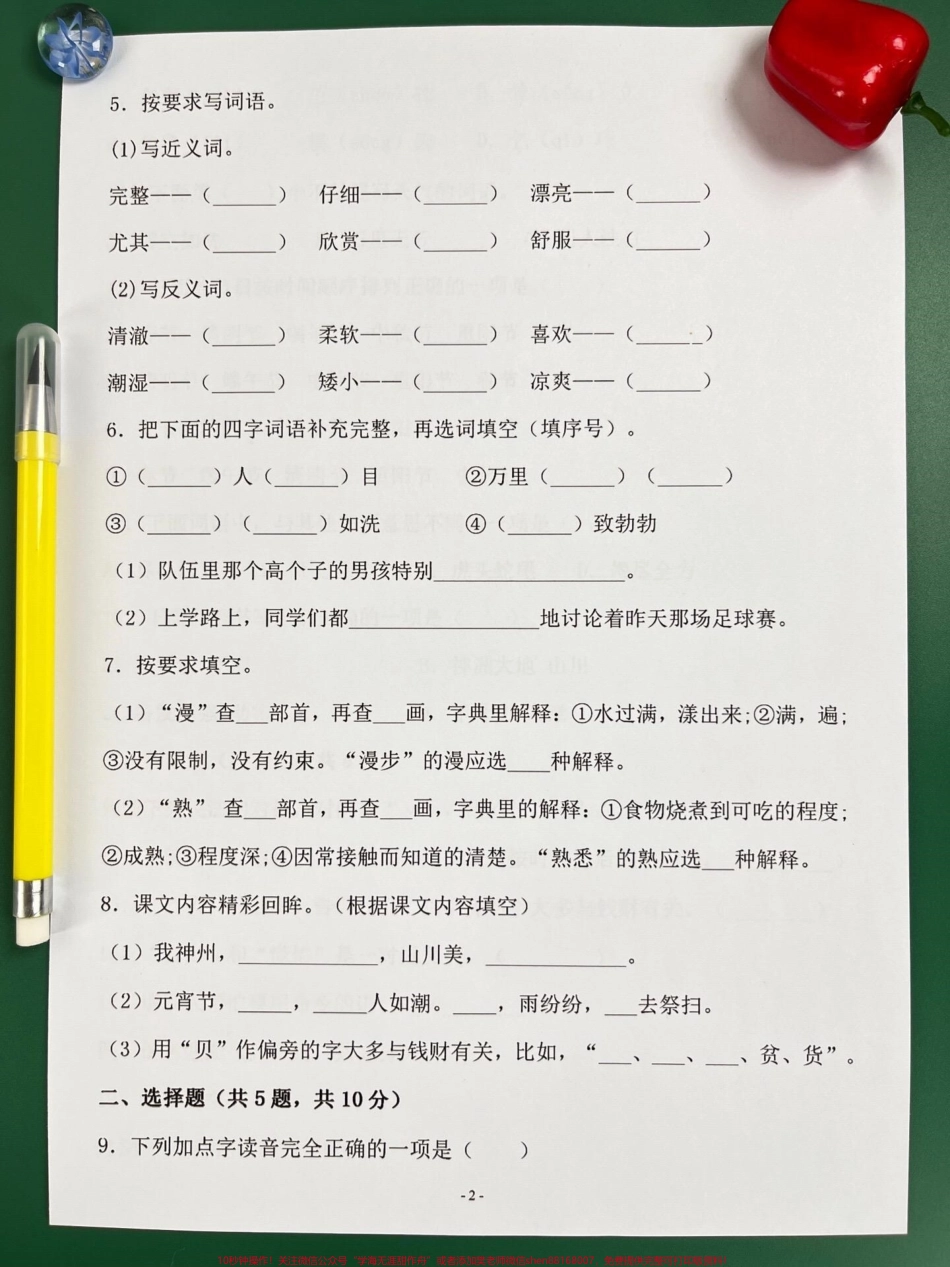 5. 按要求写词语。
(1)写近义词。
完整——（______） 仔细——（______） 漂亮——（______）
尤其——（______） 欣赏——（______） 舒服——（______）
(2)写反义词。
清澈——（______） 柔软——（______） 喜欢——（______）
潮湿——（______） 矮小——（______） 凉爽——（______）
6. 把下面的四字词语补充完整，再选词填空（填序号）。
①（______）人（______）目 ②万里（______）（______）
③（______）（______）如洗 ④（______）致勃勃
（1）队伍里那个高个子的男孩特别__________________。
（2）上学路上，同学们都__________________地讨论着昨天那场足球赛。
7. 按要求填空。
（1）“漫”查___部首，再查___画，字典里解释：①水过满，漾出来;②满，遍;
③没有限制，没有约束。“漫步”的漫应选____种解释。
（2）“熟” 查___部首，再查___画，字典里的解释：①食物烧煮到可吃的程度;
②成熟;③程度深;④因常接触而知道的清楚。“熟悉”的熟应选___种解释。
8. 课文内容精彩回眸。（根据课文内容填空）
（1）我神州，_____________，山川美，_____________。
（2）元宵节，_____，_____人如潮。____，雨纷纷，___去祭扫。
（3）用“贝”作偏旁的字大多与钱财有关，比如，“___、___、___、贫、货”。
二、选择题（共 5 题，共 10 分）
9. 下列加点字读音完全正确的一项是（ ）
- 2 -